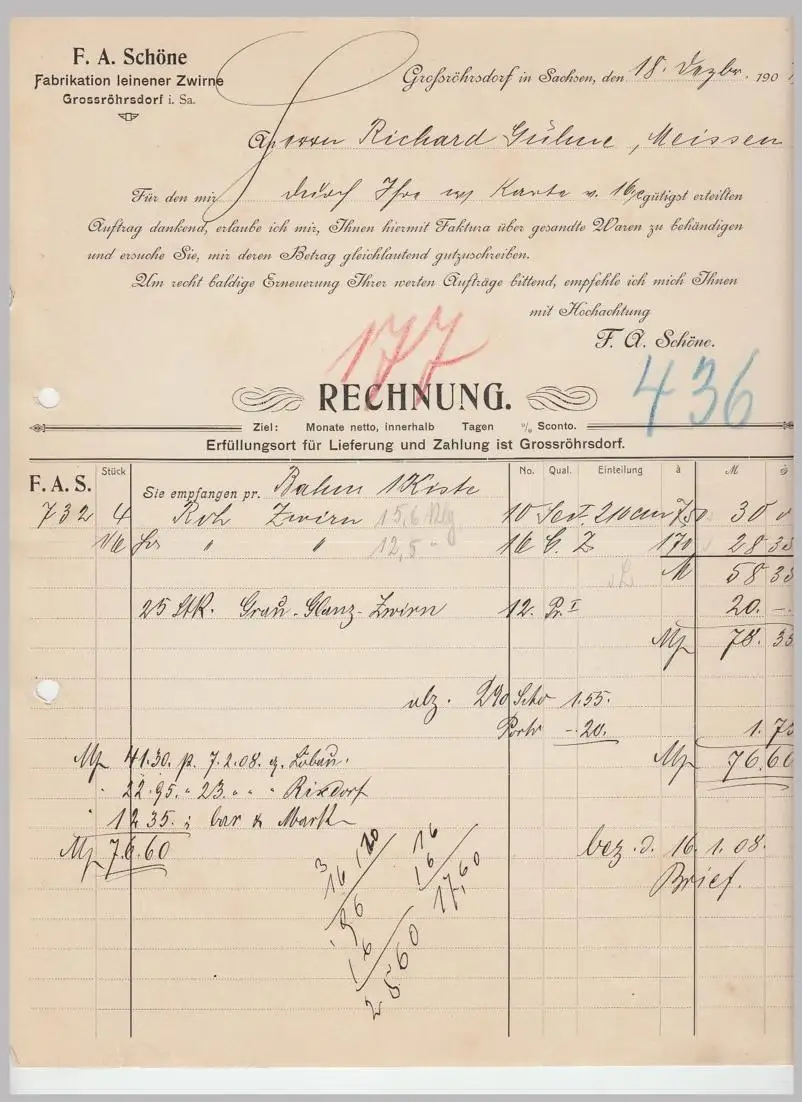 F. A. Schöne
Fabrikation leinener Zwirne
Grossröhrsdorf i. Sa.
Großröhrsdorf in Sachsen, den 18. Dezbr. 190
Herrn Richard Gühne, Meissen
Für den mir durch Ihre Karte v. 16. gütigst erteilten
Auftrag dankend, erlaube ich mir, Ihnen hiermit Faktura über gesandte Waren zu behändigen
und ersuche Sie, mir deren Betrag gleichlautend gutzuschreiben.
Um recht baldige Erneuerung Ihrer werten Aufträge bittend, empfehle ich mich Ihnen
mit Hochachtung
F. A. Schöne.
177
436
RECHNUNG.
Ziel: Monate netto, innerhalb Tagen % Sconto.
Erfüllungsort für Lieferung und Zahlung ist Grossröhrsdorf.
F. A. S. Stück Sie empfangen pr. Bahn 1 Kiste No. Qual. Einteilung à M
732 4 Roh Zwirn 15,6 10 210 cm 750 30
" " 12,5 " 16 C. Z 170 28 35
M 58 35
25 Stk. Grau-Glanz-Zwirn 12. Pr. I 20. -
M 78. 35
abz. 2% Sco 1.55.
Porto -.20. 1.75
M 41.30. p. 7.2.08. a. Löbau. M 76.60
" 22.95. " 23. " " " Rixdorf
" 12.35. " bar & Mark
M 76.60 bez. d. 16. 1. 08.
Brief.
16 120
16
16
17,60
96
16
2560